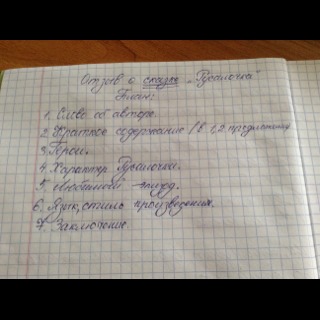 Отзыв о сказке „Русалочка"
План:
1. Слово об авторе.
2. Краткое содержание (в 1,2 предложениях)
3. Герои.
4. Характер Русалочки.
5. Любимый эпизод.
6. Язык, стиль произведения.
7. Заключение.